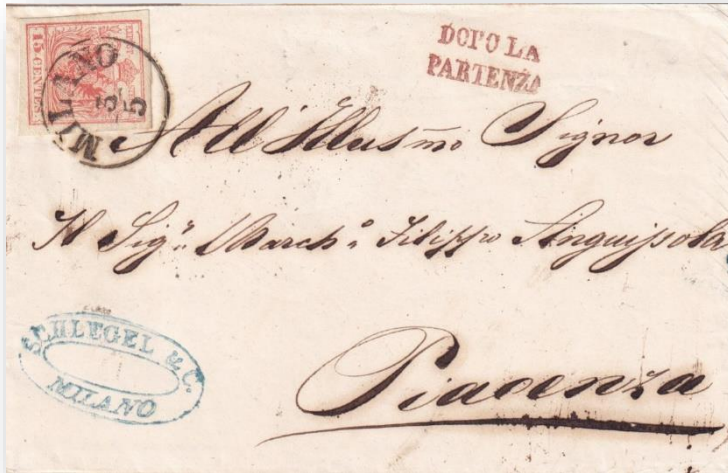 15 CENTES
MILANO
3
5
DOPO LA
PARTENZA
All' Illus mo Signor
Il Sigr. March.e Filippo Anguissola
Piacenza
SCHLEGEL & C.
MILANO